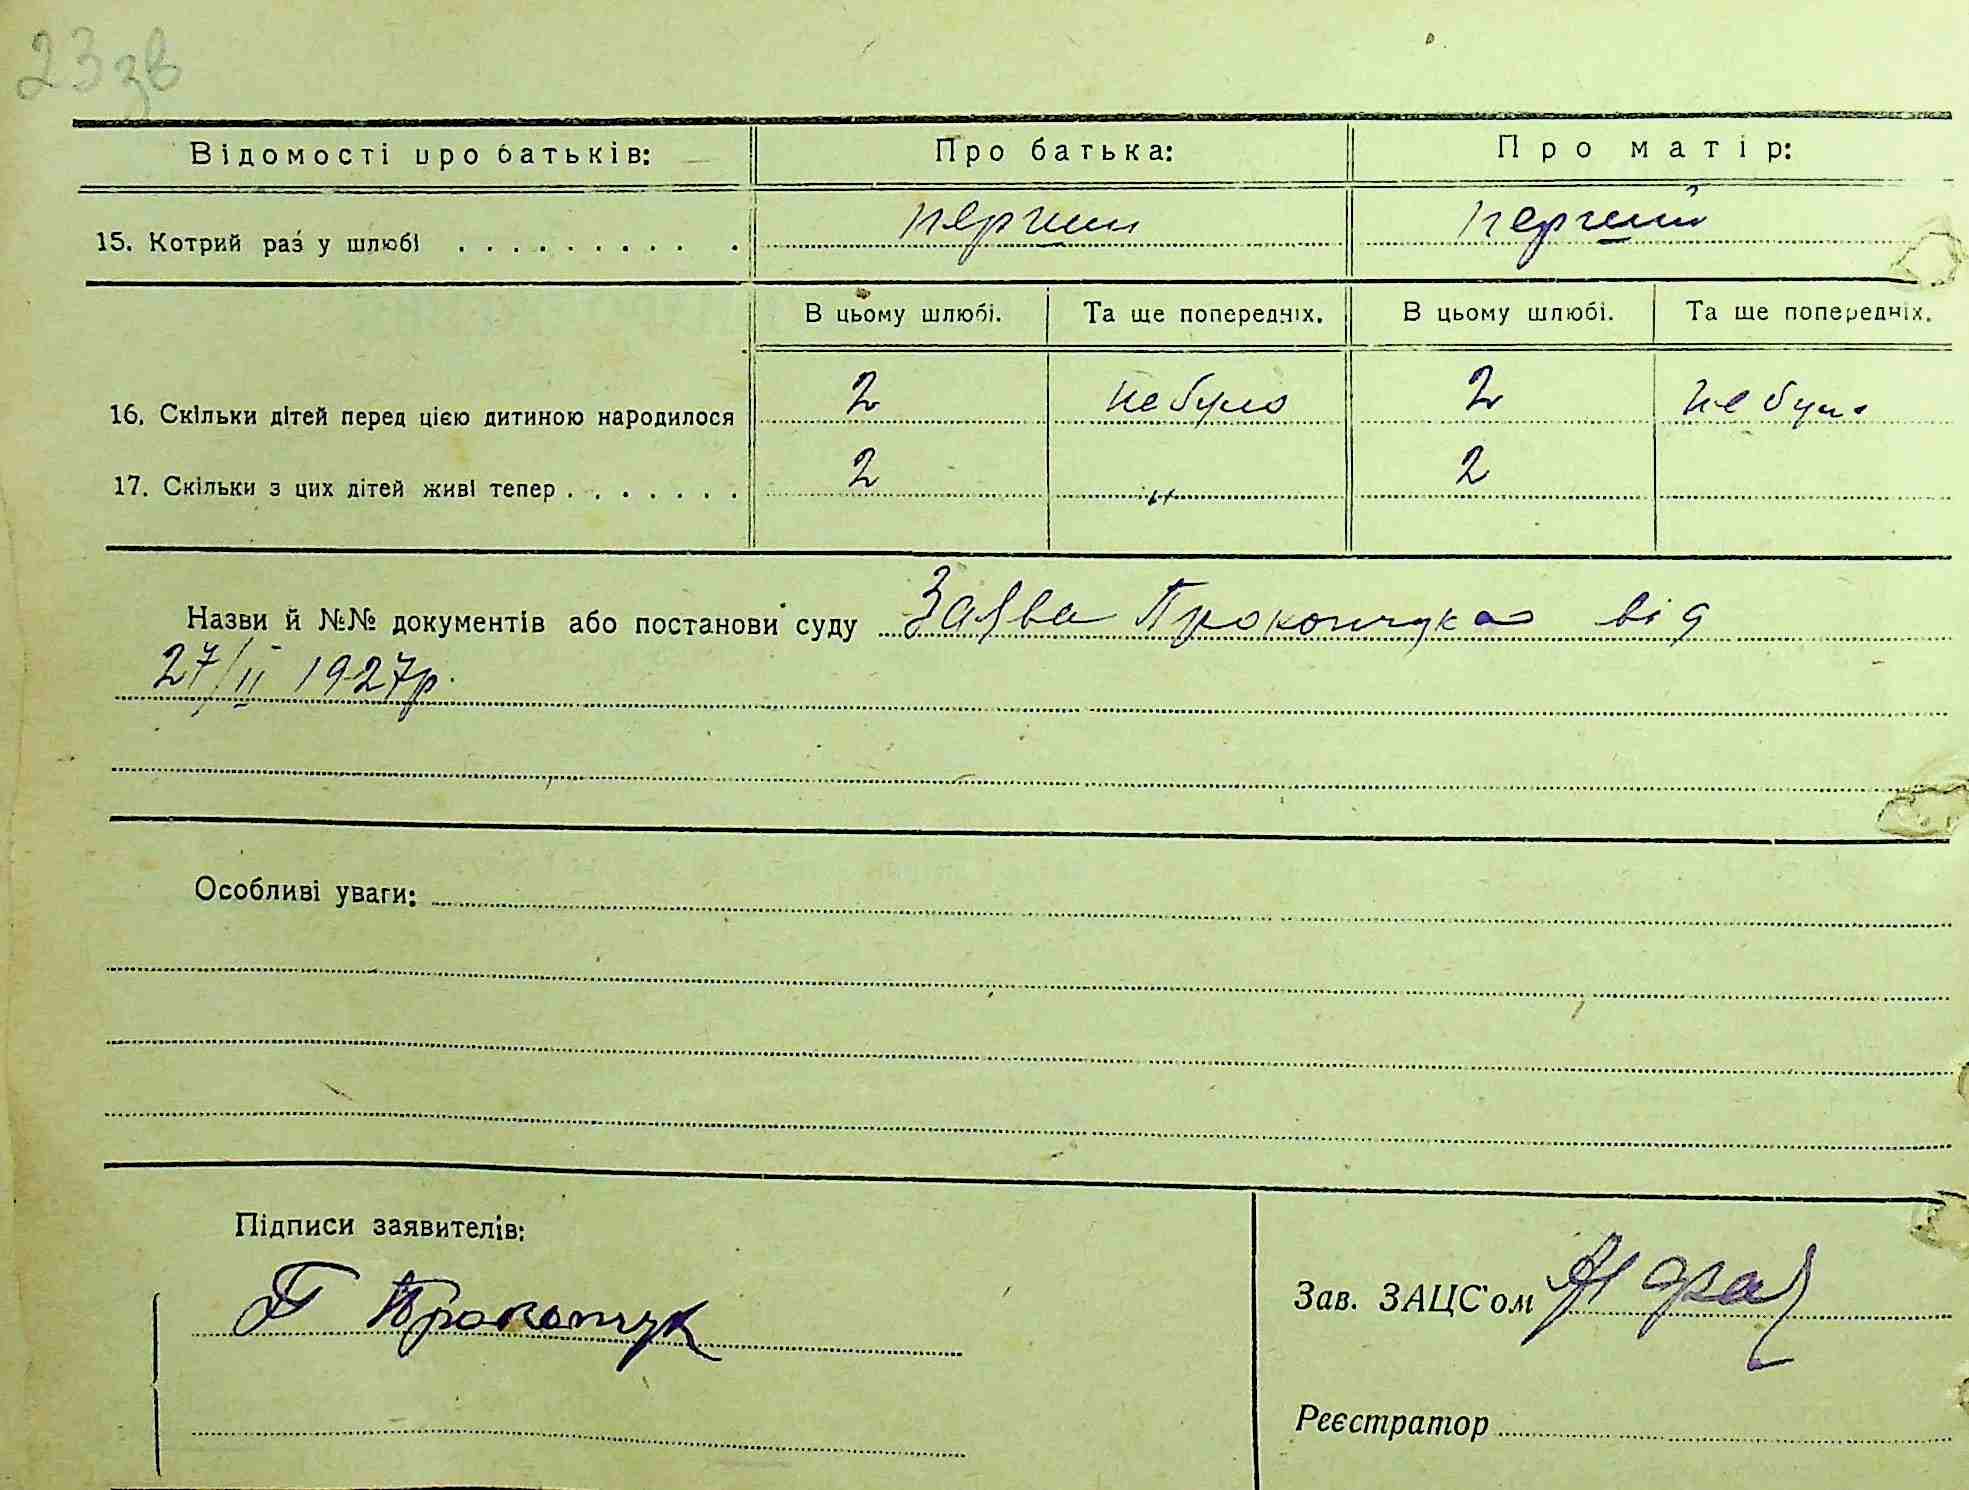 23 зв
Відомості про батьків: Про батька: Про матір:
15. Котрий раз у шлюбі . . . . . . . . . . перший перший
В цьому шлюбі. Та ще попередніх. В цьому шлюбі. Та ще попередніх.
16. Скільки дітей перед цією дитиною народилося 2 не було 2 не було
17. Скільки з цих дітей живі тепер . . . . . . . 2 " 2
Назви й №№ документів або постанови суду Заява Прокопчука від
27/II 1927р.
Особливі уваги:
Підписи заявителів:
П Прокопчук
Зав. ЗАЦС'ом
Реєстратор